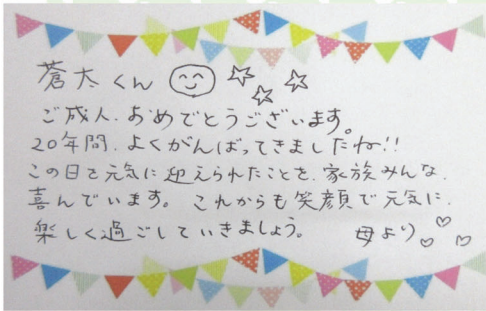 蒼太くん
ご成人、おめでとうございます。
20年間、よくがんばってきましたね!!
この日を元気に迎えられたことを、家族みんな、
喜んでいます。これからも笑顔で元気に、
楽しく過ごしていきましょう。 母より